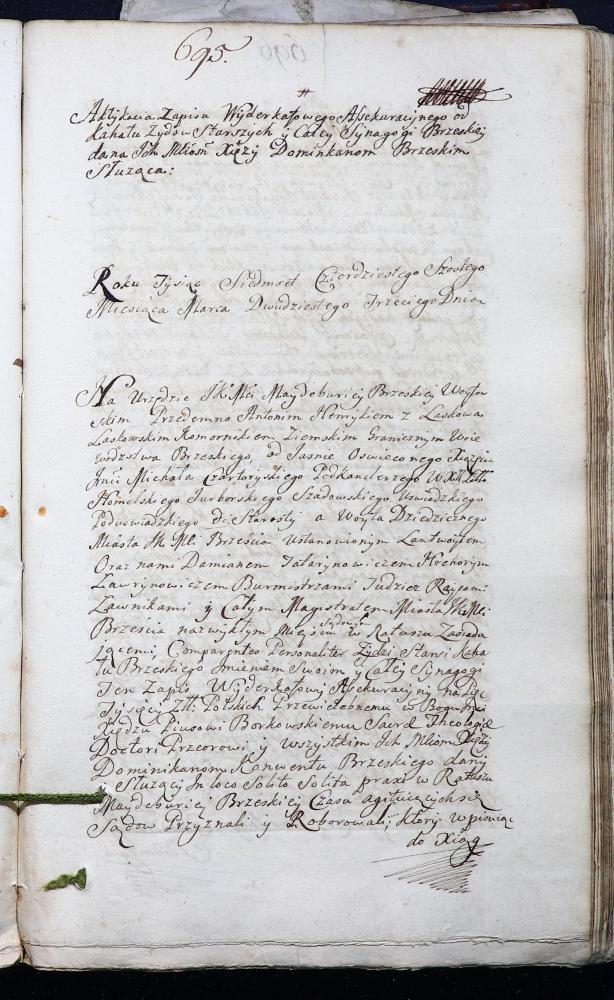 695.
Aktykacia Zapisu Wyderkafowego Asekuracyinego od
Kahału Zydow Starszych y Całey Synagogi Brzeskiey
dana Ich Mliosn Xięzy Dominikanom Brzeskim
Słuząca:
Roku Tysiąc Siedmset Czterdziestego Szostego
Miesiąca Marca Dwudziestego Trzeciego Dnia
Na Urzędzie J K Mci Maydeburiey Brzeskiey Woytow
skim Przedemno Antonim Henrykiem z Laskowa
Laskowskim Komornikiem Ziemskim Granicznym Woie
wodztwa Brzeskiego, od Jasnie Oswieconego Xiązęcia
Jmci Michała Czartoryskiego Podkanclerzego W X Litto
Homelskiego Jurborskiego Szadowskiego Uswiadzkiego
Poduswiadzkiego &c Starosty a Woyta Dziedzicznego
Miasta JK Mci Brzescia Ustanowionym Lantwoytem
Oraz nami Damianem Tatarynowiczem Hrehorym
Ławrynowiczem Burmistrzami Tudziez Raycami
Ławnikami y Całym Magistratem Miasta JK Mci
Brzescia na zwykłym Mieyscu Sądowym w Ratuszu Zasiada
iącemi Comparentes Personaliter Zydzi Starsi Kaha
łu Brzeskiego Imieniem Swoim y Całey Synagogi
Ten Zapis Wyderkafowy Asekuracyiny na
Tysięcy Złł: Polskich Przewielebnemu w Bogu Jmci
Xiędzu Piusowi Borkowskiemu Sacræ Theologiæ
Doctori Przeorowi y wszystkim Ich Mliom Xięzy
Dominikanom Konwentu Brzeskiego dany
y Słuzący In loco Solito Solita praxi w Ratuszu
Maydeburiey Brzeskiey Czasu agituiących się
Sądow Przyznali y Roborowali, ktory wpisuiąc
do Xiąg